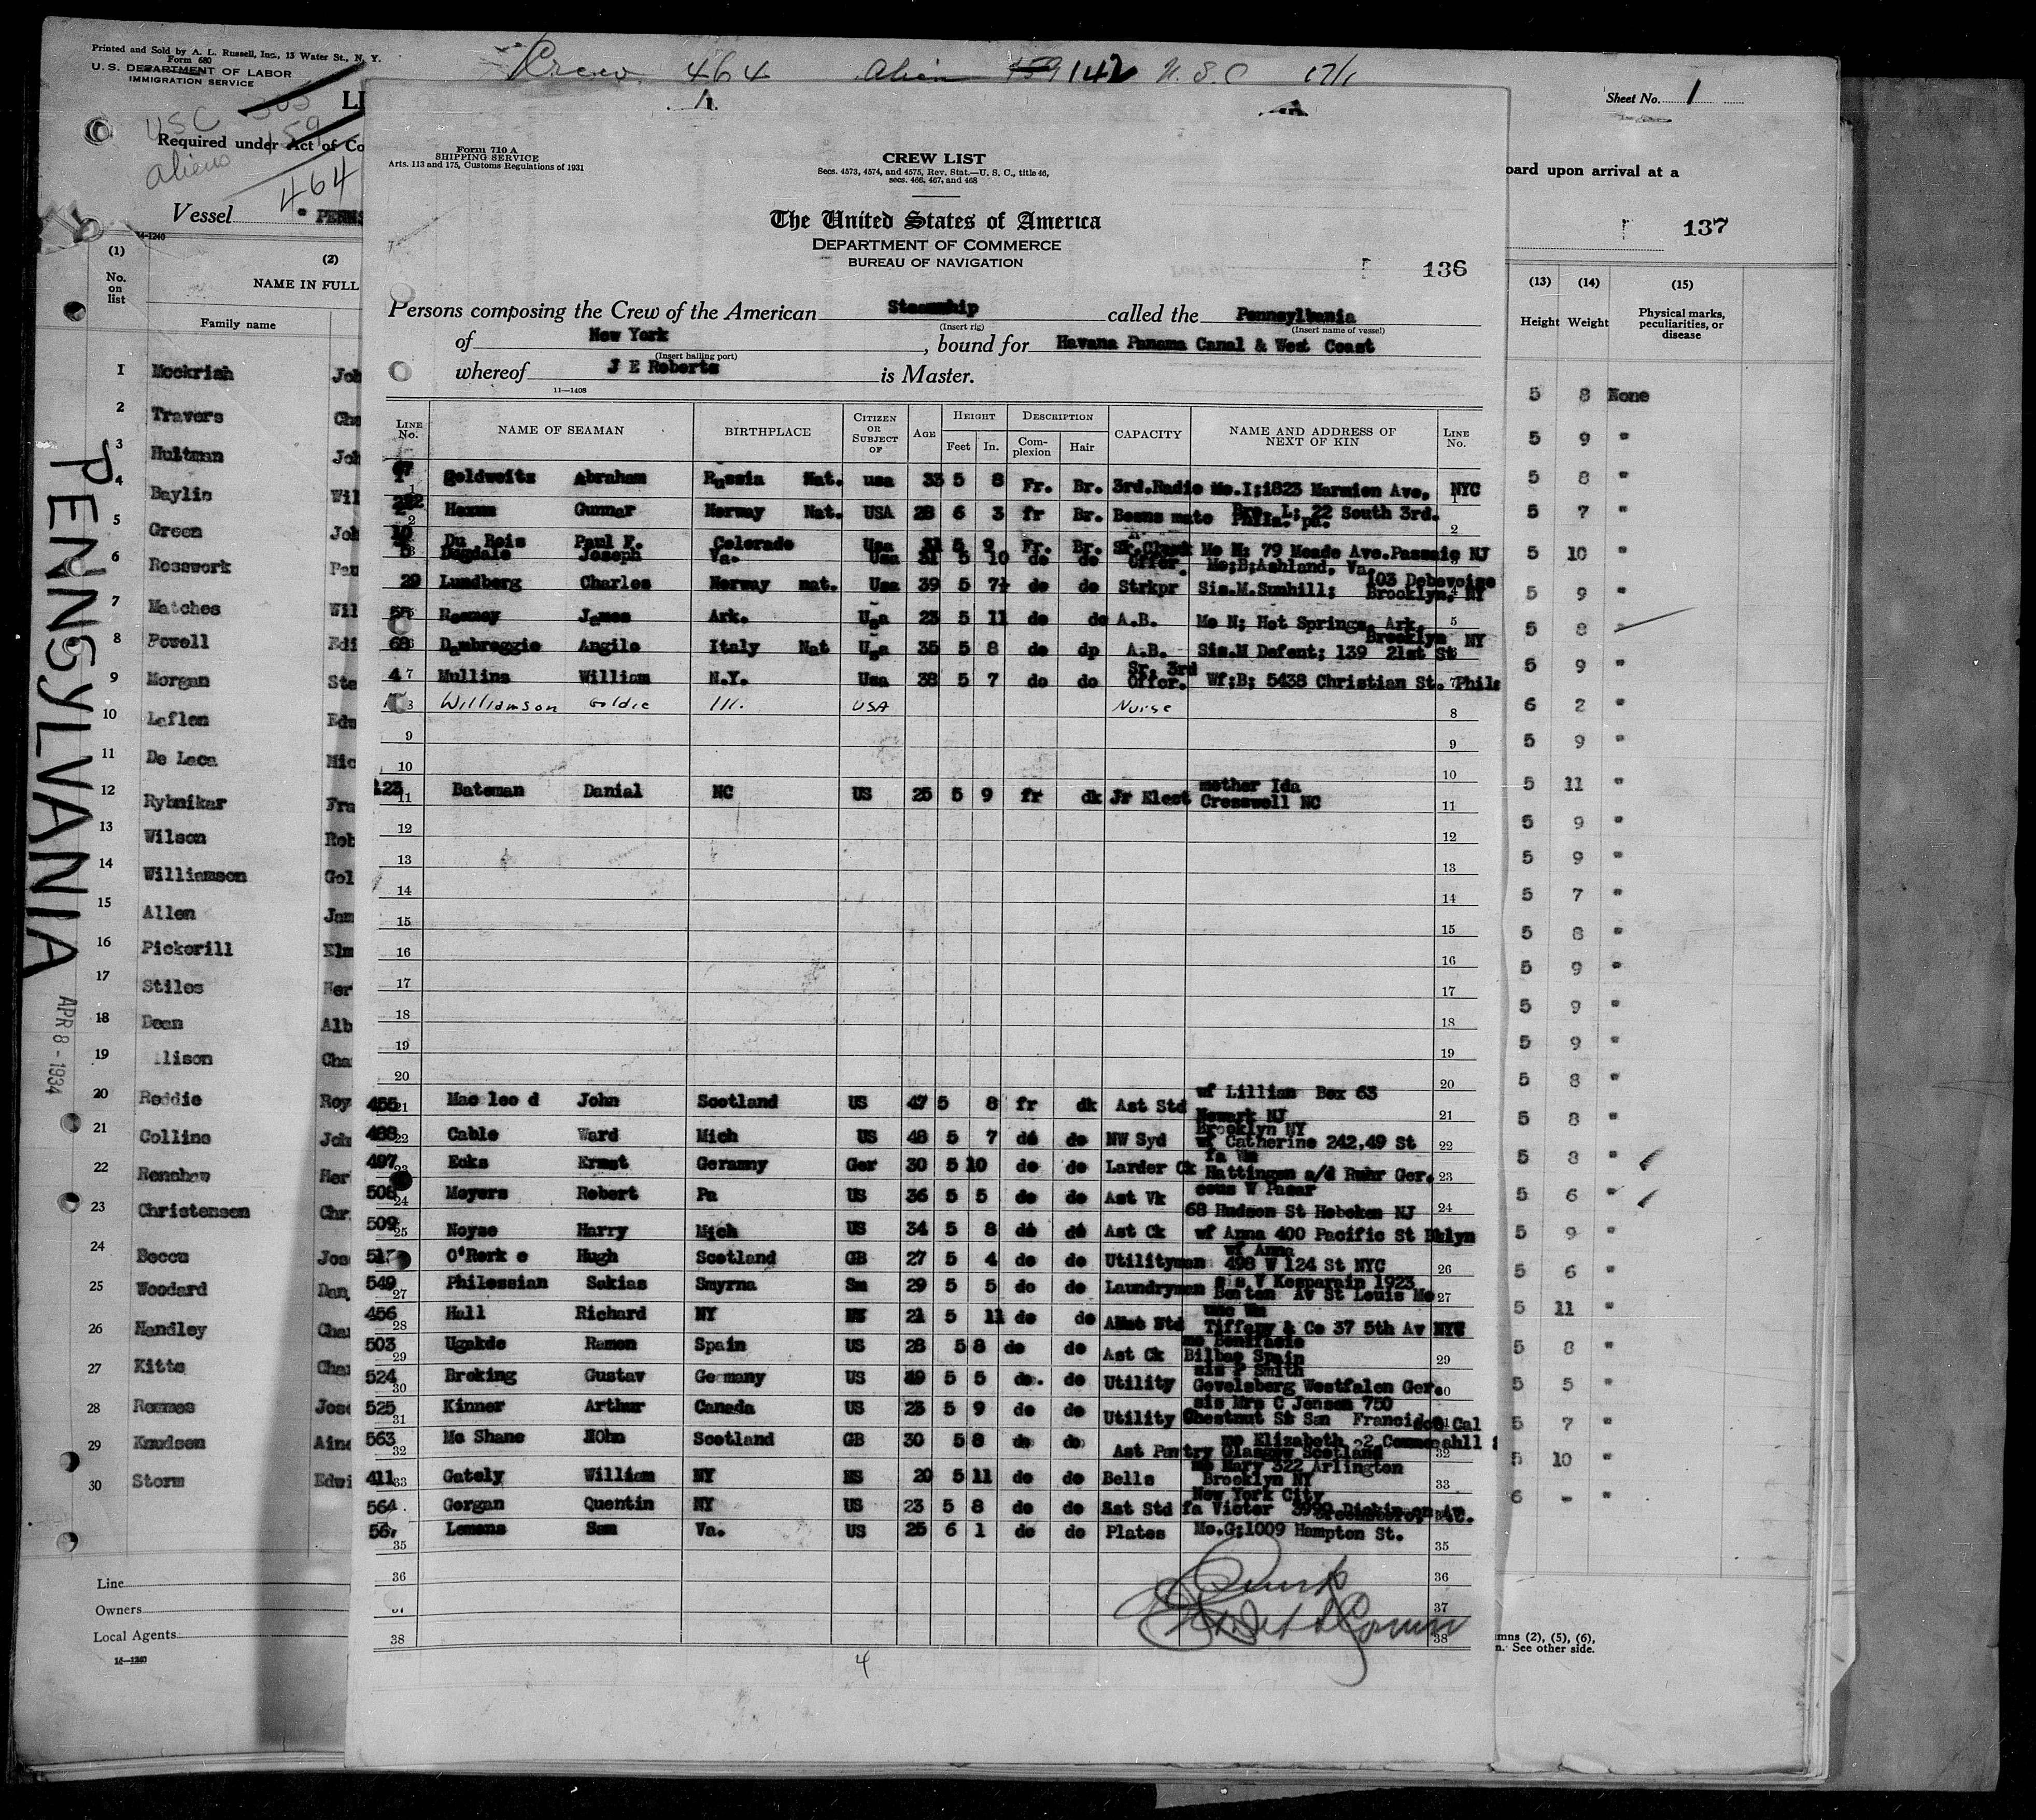 Printed and Sold by A. L. Russell, Inc., 13 Water St., N. Y.
Form 680
U. S. DEPARTMENT OF LABOR
IMMIGRATION SERVICE
Crew 464 Alien 159 142 U.S.C
Sheet No. 1
USC
Required under Act of Co
aliens 159
464
oard upon arrival at a
Vessel "PENNS
137
14-1240
(1) (2) (13) (14) (15)
No. on list NAME IN FULL Height Weight Physical marks, peculiarities, or disease
Family name
1 Mockrish Joh 5 8 None
2 Travers Cha 5 9 "
3 Hultman Joh 5 8 "
4 Baylis Wil 5 7 "
5 Green Joh 5 10 "
6 Rosswork Pau 5 9 "
7 Matches Wil 5 8 "
8 Powell Edi 5 9 "
9 Morgan Ste 6 2 "
10 Leflen Edw 5 9 "
11 De Leca Mic 5 11 "
12 Rybnikar Fra 5 9 "
13 Wilson Rob 5 9 "
14 Williamson Gol 5 7 "
15 Allen Jam 5 8 "
16 Pickerill Elm 5 9 "
17 Stiles Her 5 9 "
18 Dean Alb 5 9 "
19 lison Cha 5 8 "
20 Reddie Roy 5 8 "
21 Collins Joh 5 8 "
22 Renshaw Her 5 6 "
23 Christensen Chr 5 9 "
24 Becca Jos 5 6 "
25 Woodard Dan 5 11 "
26 Handley Cha 5 8 "
27 Kitts Cha 5 5 "
28 Rommes Jose 5 7 "
29 Knudsen Aine 5 10 "
30 Storm Edwi 6 - "
Line
Owners
Local Agents
14-1240
mns (2), (5), (6),
n. See other side.
PENNSYLVANIA
APR 8 - 1934
Form 710 A
SHIPPING SERVICE
Arts. 113 and 175, Customs Regulations of 1931
CREW LIST
Secs. 4573, 4574, and 4575, Rev. Stat.—U. S. C., title 46,
secs. 466, 467, and 468
The United States of America
DEPARTMENT OF COMMERCE
BUREAU OF NAVIGATION
136
Persons composing the Crew of the American Steamship called the Pennsylvania
(Insert rig) (Insert name of vessel)
of New York, bound for Havana Panama Canal & West Coast
(Insert hailing port)
whereof J E Roberts is Master.
11—1408
LINE No. NAME OF SEAMAN BIRTHPLACE CITIZEN OR SUBJECT OF AGE HEIGHT DESCRIPTION CAPACITY NAME AND ADDRESS OF NEXT OF KIN LINE No.
Feet In. Complexion Hair
1 Goldweits Abraham Russia Nat. usa 33 5 8 Fr. Br. 3rd.Radio Mo.I;1823 Marmion Ave. NYC 1
2 Hexum Gunnar Norway Nat. USA 28 6 3 fr Br. Boans mate Bro. L; 22 South 3rd. Phila. pa. 2
Du Bois Paul F. Colorado Usa 31 5 9 Fr. Br. Sr.Clerk Mo N; 79 Meade Ave.Passaic NJ
Dugdale Joseph Va. Usa 31 5 10 do do Offcr. Mo;B;Ashland, Va.
29 Lundberg Charles Norway nat. Usa 39 5 7½ do do Strkpr Sis.M.Sunhill; 103 Debevoise Brooklyn, NY
Rooney James Ark. Usa 23 5 11 do do A.B. Mo N; Hot Springs, Ark. 5
68 Dambroggio Angilo Italy Nat Usa 35 5 8 do dp A.B. Sis.M Defent; 139 21st St Brooklyn NY
47 Mullins William N.Y. Usa 38 5 7 do do Sr. 3rd Offcr. Wf;B; 5438 Christian St. Phila
Williamson Goldie Ill. USA Nurse 8
9 9
10 10
123 11 Bateman Danial NC US 25 5 9 fr dk Jr Elect mother Ida Cresswell NC 11
12 12
13 13
14 14
15 15
16 16
17 17
18 18
19 19
20 20
455 21 Mac leo d John Scotland US 47 5 8 fr dk Ast Std wf Lillian Box 63 Newark NJ 21
488 22 Cable Ward Mich US 48 5 7 do do NW Syd Brooklyn NY wf Catherine 242,49 St 22
497 23 Ecks Ernst Geramny Ger 30 5 10 do do Larder Ck fa Wm Hattingen a/d Ruhr Ger. 23
508 24 Meyers Robert Pa US 36 5 5 do do Ast Vk cous W Pasar 68 Hudson St Hoboken NJ 24
509 25 Noyse Harry Mich US 34 5 8 do do Ast Ck wf Anna 400 Pacific St Bklyn
51 O'Rork e Hugh Scotland GB 27 5 4 do do Utilityman wf Anna 498 W 124 St NYC 26
549 27 Philossian Sakias Smyrna Sm 29 5 5 do do Laundryman sis V Kesparain 1923 Benton Av St Louis Mo 27
456 28 Hall Richard NY 21 5 11 do do Std unc Wm Tiffany & Co 37 5th Av NYC
503 29 Ugakde Ramon Spain US 28 5 8 do do Ast Ck mo Bonifacio Bilbao Spain 29
524 30 Broking Gustav Germany US 39 5 5 do. do Utility sis P Smith Gevelsberg Westfalen Ger. 30
525 31 Kinner Arthur Canada US 23 5 9 do do Utility sis Mrs C Jensen 750 Chestnut St San Francisco Cal
563 32 Mc Shane Scotland GB 30 5 8 do do Ast Pantry mo Elizabeth 22 Glasgow Scotland 32
411 33 Gately William NY 20 5 11 do do Bells mo Mary 322 Arlington Brooklyn NY 33
564 Gorgan Quentin NY US 23 5 8 do do Ast Std New York City fa Victor 3990 Dickinson Av
Lemons Sam Va. US 25 6 1 do do Plates Mo.G;1009 Hampton St.
35 35
36 36
37
38 38
4